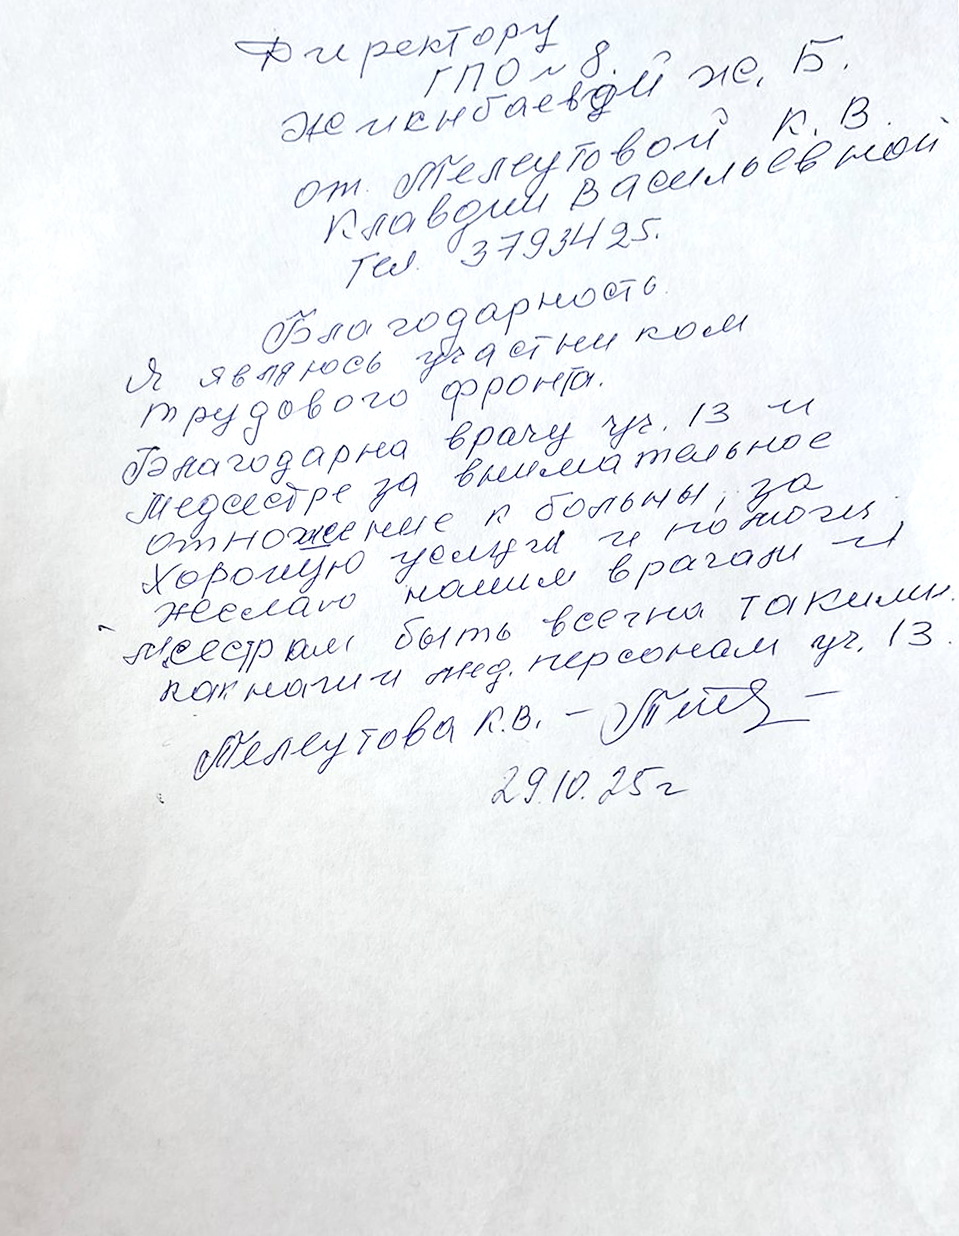 Директору
ГПО № 8.
Жикнбаевой Ж. Б.
от Телеутовой К. В.
Клавдии Васильевной
тел. 3793425.
Благодарность
Я являюсь участником
трудового фронта.
Благодарна врачу уч. 13 и
Медсестре за внимательное
отножение к больны, за
хорошую услугы и
желаю нашим врачам и
м,сестрам быть всегна такими.
как наши мед. персонам уч. 13.
Телеутова К.В. –
29.10.25г